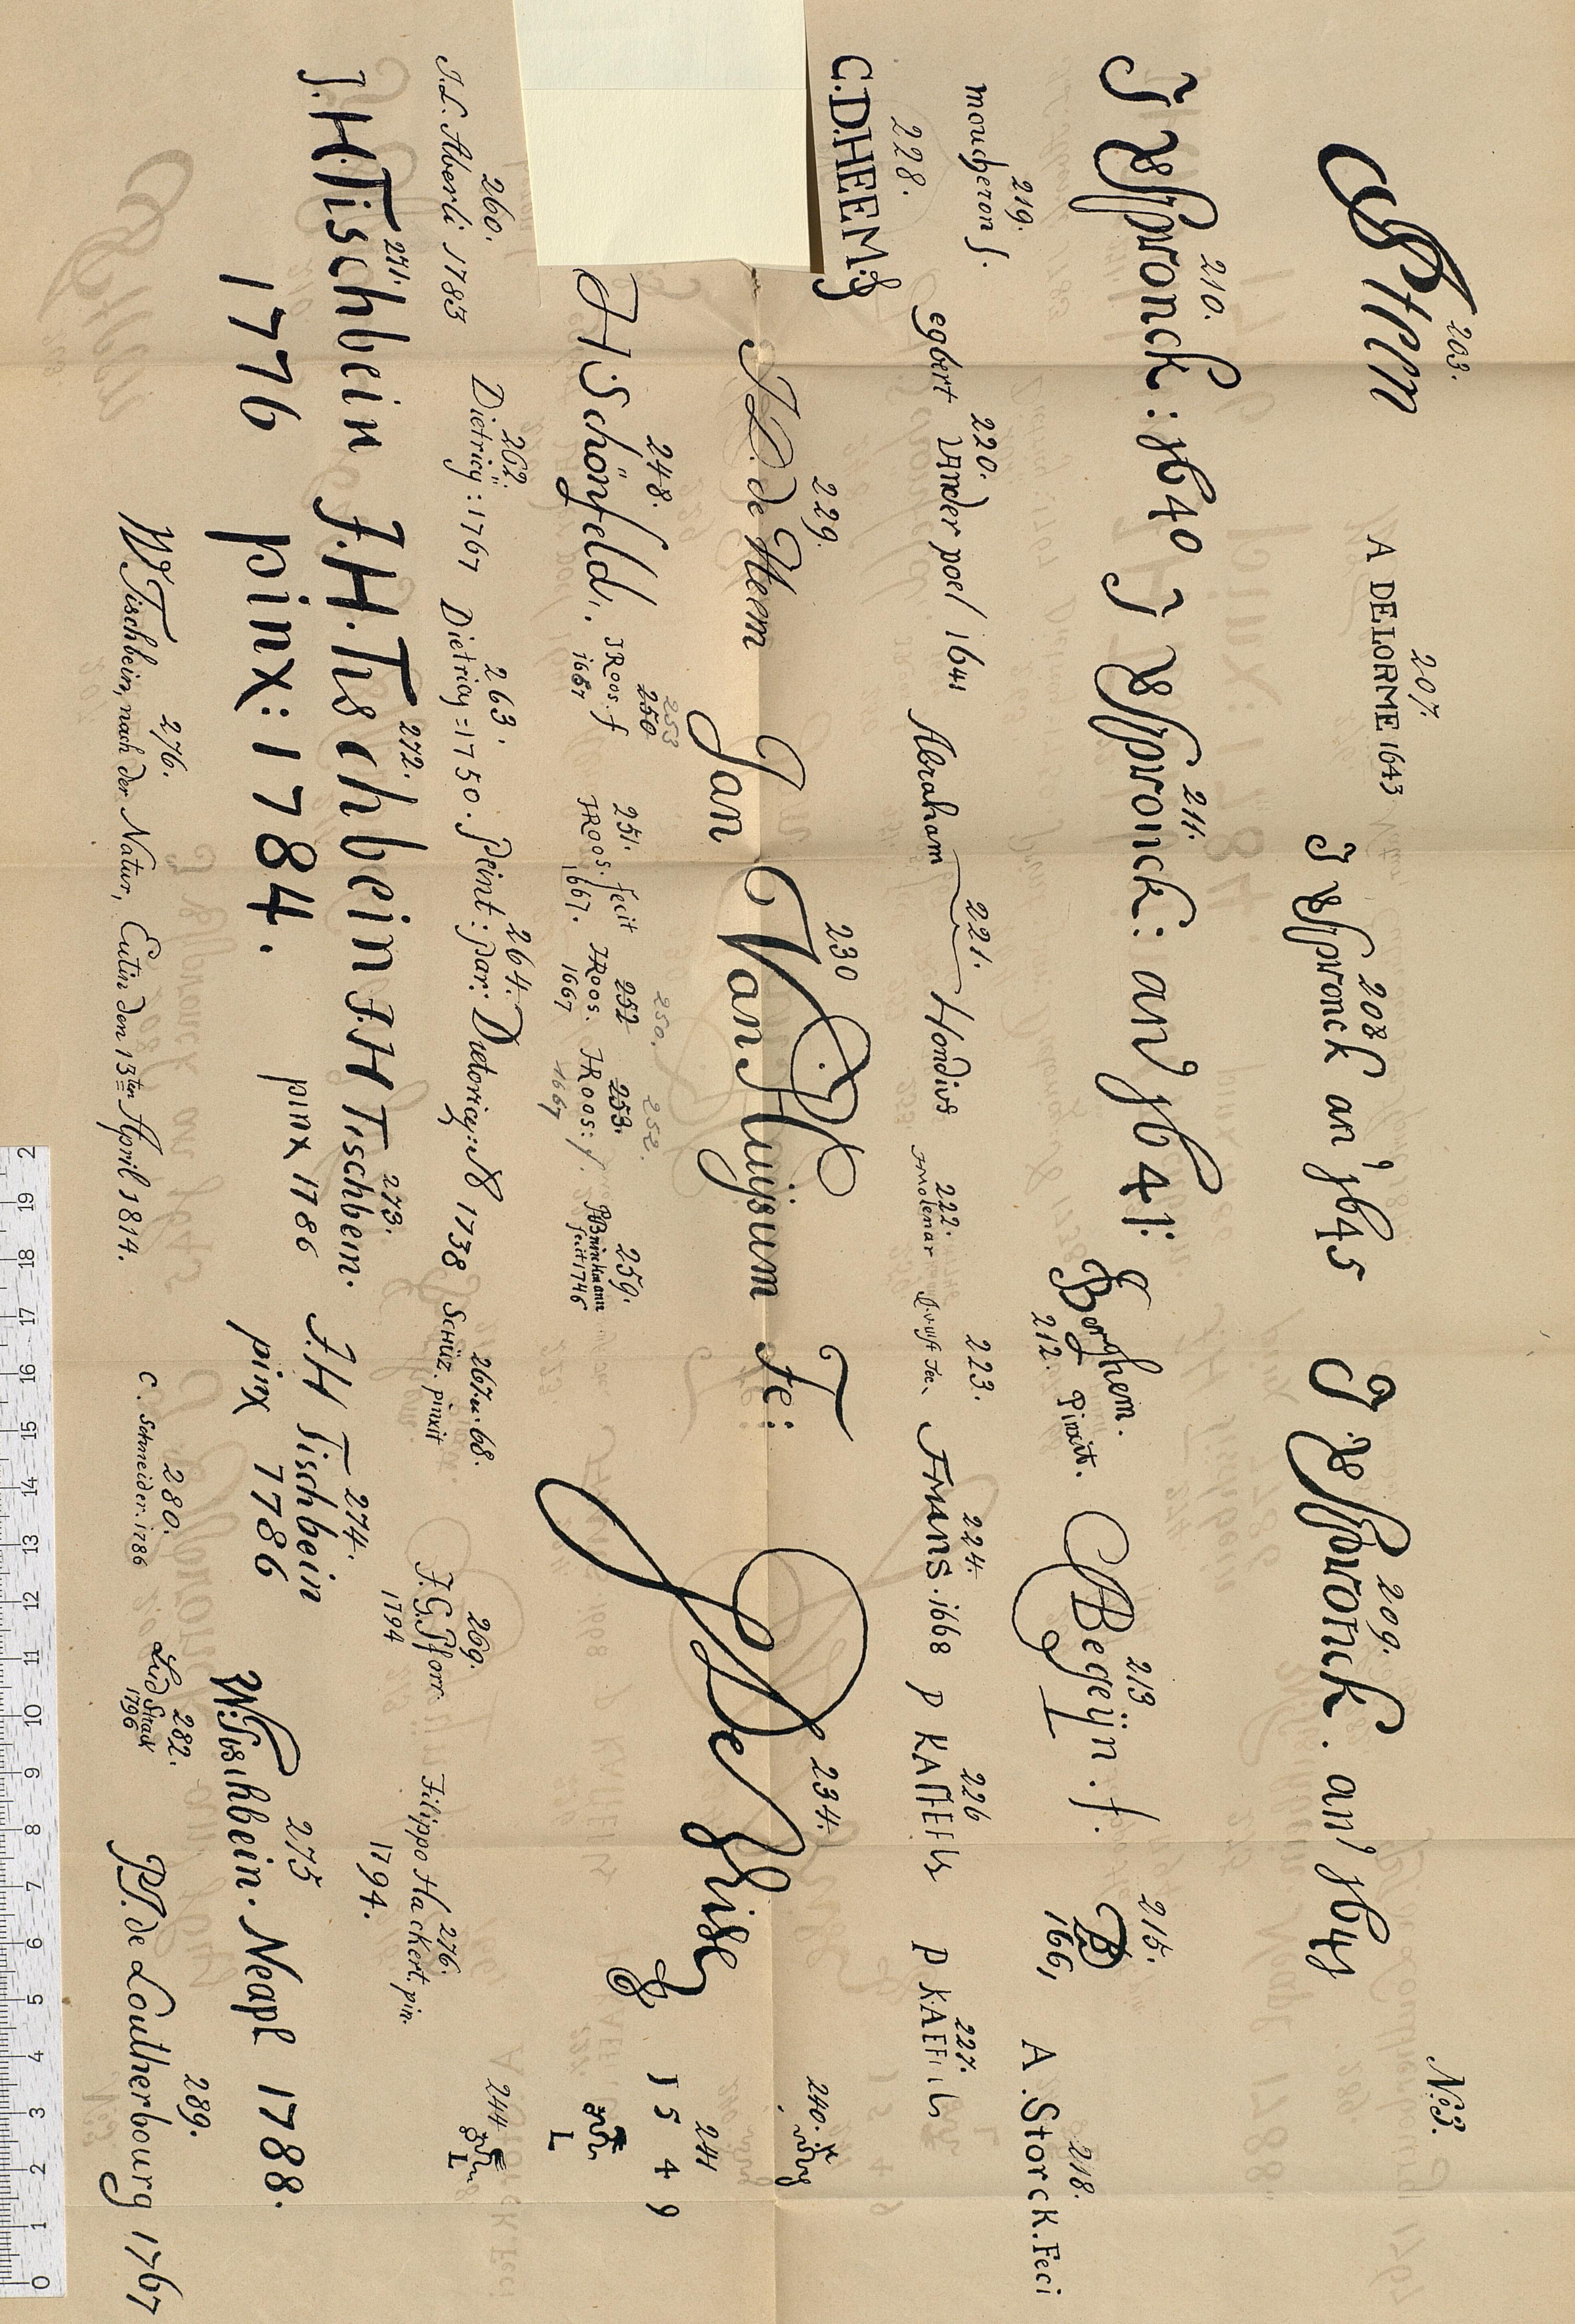 No: 3.
203.
207.
A DE LORME 1643
208
J VSpronck an° 1645
209.
J VSpronck . an° 1645
210.
J VSpronck : 1640
211.
J VSpronck : an° 1641:
Berghem.
212. Pinxit.
213
CBegeijn . f.
215.
166
218.
A. Storck. Feci
219.
moucheron f.
220.
egbert vander poel 1641
221.
Abraham Hondius
222.
molenar
223.
224.
FRANS. 1668
226
P KAEFELS
227.
P KAEFELS
228.
C. D. HEEM
229.
J D. de Heem
230
Jan Van Huijsum Fe:
234.
De
240.
241
1 5 4 9
L
244.
L
248.
JH Schönfeldt,
253
250
JRoos. f
1667
251.
JRoos. fecit
1667.
250.
252
JRoos.
1667
252.
253.
JRoos: f.
1667
259.
Brinckmann
fecit 1746
260.
J. L. Aberli 1783
262.
Dietricÿ: 1767
263.
Dietricy = 1750.
264.
Peint: par: Dietericy: 1738
267 u. 68.
SCHÜZ. pinxit
269.
J. G. Pforr
1794
276.
Filippo Hackert. pin.
1794.
271.
J. H. Tischbein
1776
272.
J. H. Tischbein
pinx: 1784.
273.
J. H Tischbein.
pinx 1786
274.
J. H Tischbein
pinx 1786
275
W. Tischbein. Neapl 1788.
276.
W Tischbein, nach der Natur, Eutin den 13ten April 1814.
280.
C. Schneider. 1786
282.
Lud Strack
1796
289.
P. J. de Loutherbourg 1767
0 1 2 3 4 5 6 7 8 9 10 11 12 13 14 15 16 17 18 19 2